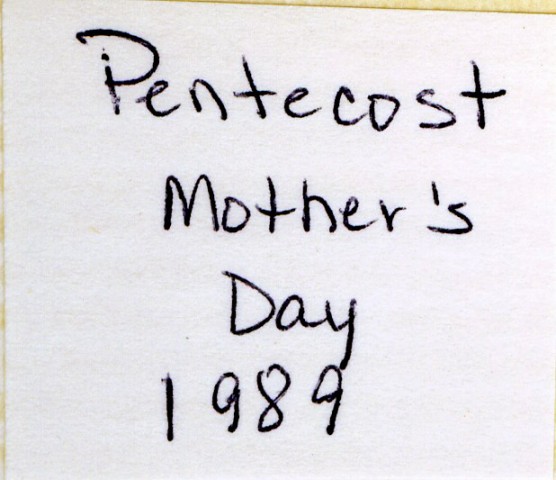 Pentecost
Mother's
Day
1989